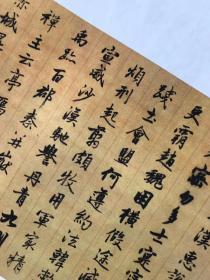 漢惠
密勿多士寔
更霸趙魏困橫假途滅
踐土會盟何遵約法韓
煩刑起翦頗牧用軍最精
宣威沙漠馳譽丹青九州
禹跡百郡秦并嶽
禪主云亭雁
赤城